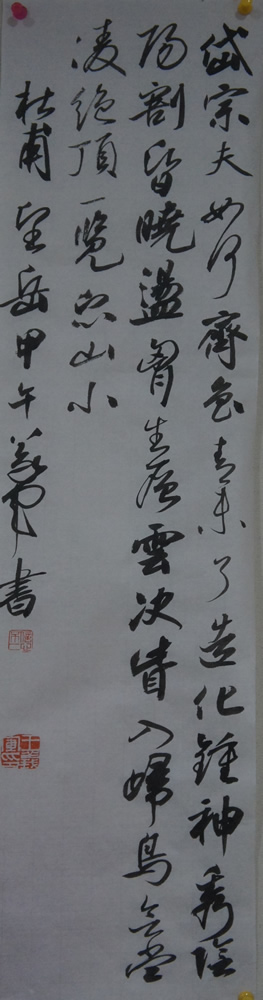 岱宗夫如何齊魯青未了造化鍾神秀陰
陽割昏曉盪胷生層雲决眥入歸鳥會當
凌絶頂一覽眾山小
杜甫望岳甲午義軍書